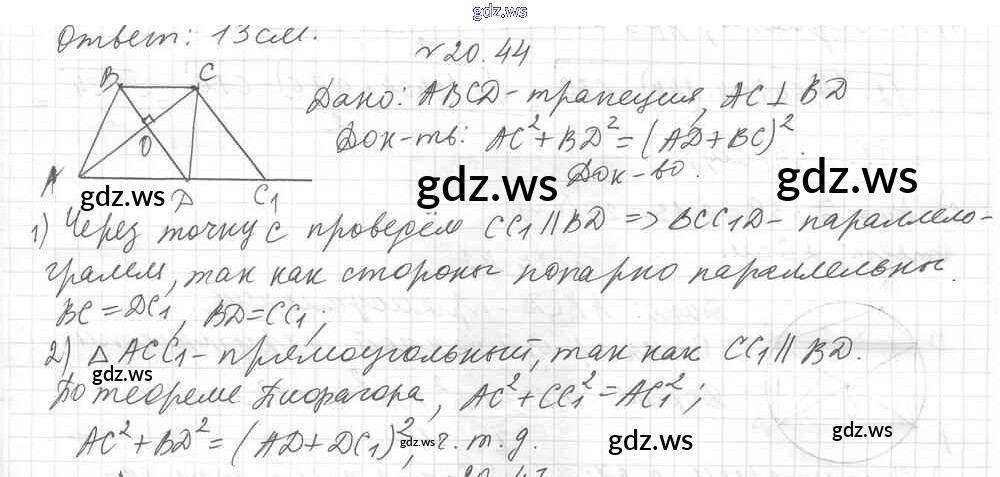 gdz.ws
Ответ: 13 см.
№20.44
B C
Дано: ABCD - трапеция, AC ⊥ BD
Док-ть: AC² + BD² = (AD + BC)².
O
Док-во.
A D C₁
gdz.ws gdz.ws gdz.ws
1) Через точку C проведём CC₁ || BD => BCC₁D - параллело-
грамм, так как стороны попарно параллельны.
BC = DC₁, BD = CC₁;
2) △ ACC₁ - прямоугольный, так как CC₁ || BD.
gdz.ws
По теореме Пифагора, AC² + CC₁² = AC₁²;
AC² + BD² = (AD + DC₁)², ч. т. д.
gdz.ws gdz.ws gdz.ws